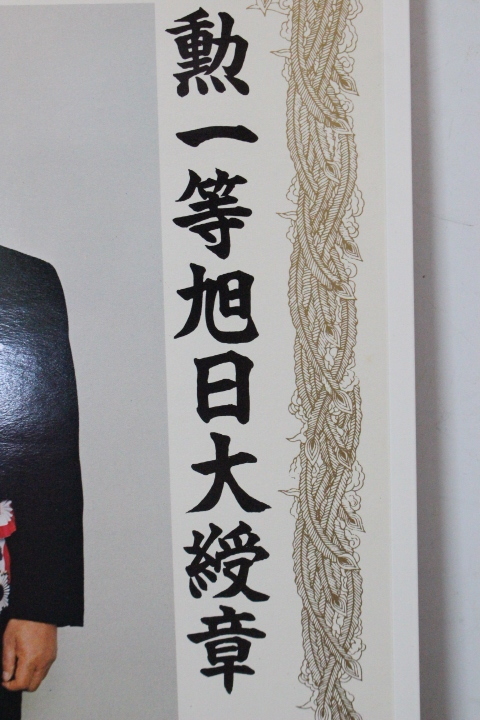 勲一等旭日大綬章